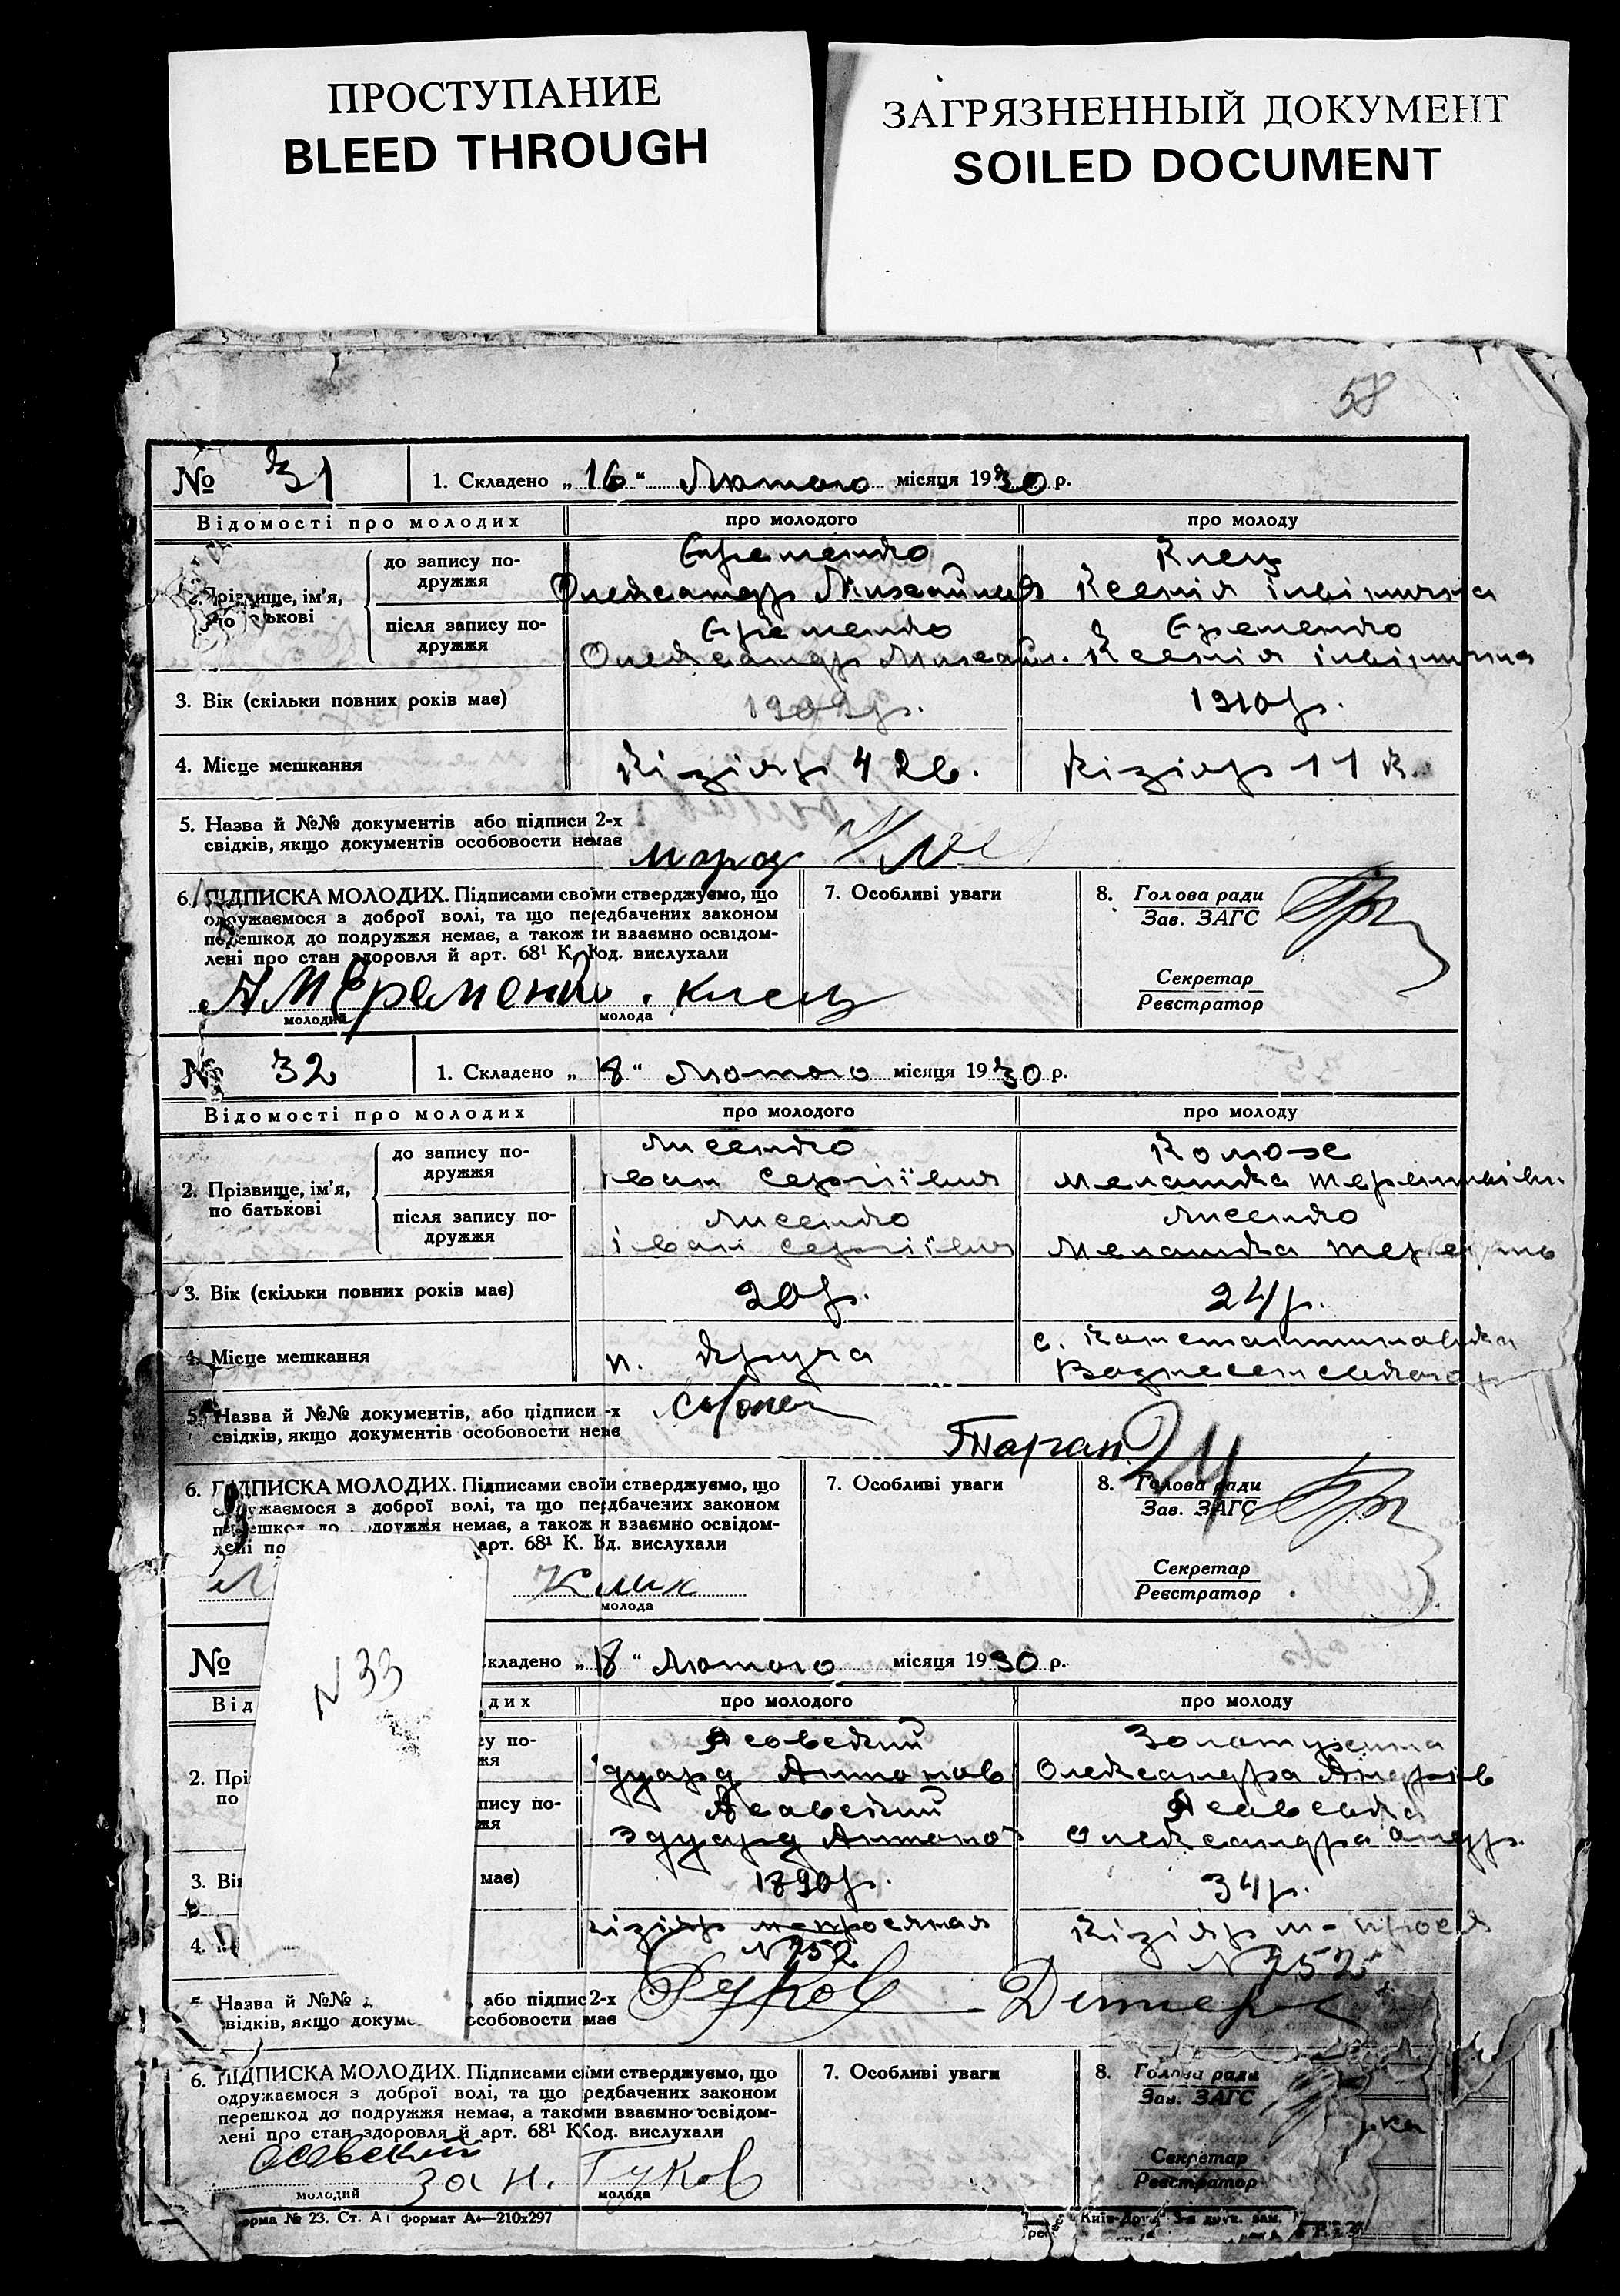 ПРОСТУПАНИЕ
BLEED THROUGH
ЗАГРЯЗНЕННЫЙ ДОКУМЕНТ
SOILED DOCUMENT
58
№ 31 1. Складено „16“ Лютого місяця 1930 р.
Відомості про молодих про молодого про молоду
2. Прізвище, ім’я, по батькові
до запису подружжя
Єременко Клец
Олександр Михайлов Ксенія
після запису подружжя
Єременко Єременко
Олександр Михайл. Ксенія
3. Вік (скільки повних років має) 1909р. 1910р.
4. Місце мешкання Кізіяр 4 кв. Кізіяр 11 к.
5. Назва й №№ документів або підписи 2-х
свідків, якщо документів особовости немає
6. ПІДПИСКА МОЛОДИХ. Підписами своїми стверджуємо, що
одружаємося з доброї волі, та що передбачених законом
перешкод до подружжя немає, а також ми взаємно освідом-
лені про стан здоровля й арт. 68¹ К. Код. вислухали
7. Особливі уваги
8. Голова ради
Зав. ЗАГС
Секретар
Реєстратор
АМЕременко Клец
молодий молода
№ 32 1. Складено „18“ Лютого місяця 1930 р.
Відомості про молодих про молодого про молоду
2. Прізвище, ім’я, по батькові
до запису подружжя
Лисенко
Іван Сергіївич Меланка
після запису подружжя
Лисенко Лисенко
Іван Сергіївич Меланка
3. Вік (скільки повних років має) 20р. 24р.
4. Місце мешкання с. Константиновка
5. Назва й №№ документів, або підписи -х
свідків, якщо документів особовости немає
Таран
6. ПІДПИСКА МОЛОДИХ. Підписами своїми стверджуємо, що
одружаємося з доброї волі, та що передбачених законом
перешкод до подружжя немає, а також и взаємно освідом-
лені про арт. 68¹ К. Код. вислухали
7. Особливі уваги
8. Голова ради
Зав. ЗАГС
Секретар
Реєстратор
молода
№ N 33 складено „18“ Лютого місяця 1930 р.
Від дих про молодого про молоду
2. Прі
по
Асовский
Эдуард Антонов Олександра Андріїв
Асавский Асавська
Эдуард Антоно Олександра Андр.
3. Вік має) 1890р. 34р.
4. Кізіяр Кізіяр
N 252 N 252
5. Назва й №№ або підпис 2-х
свідків, якщо докуме особовости має
Гуков
6. ПІДПИСКА МОЛОДИХ. Підписами сими стверджуємо, що
одружаємося з доброї волі, та що редбачених законом
перешкод до подружжя немає, а такоми взаємно освідом-
лені про стан здоровля й арт. 68¹ К. Код. вислухали
7. Особливі уваги
8. Голова ради
Зав. ЗАГС
Секретар
Реєстратор
Осавский за н. Гуков
молодий молода
орма № 23. Ст. А формат А₄—210х297